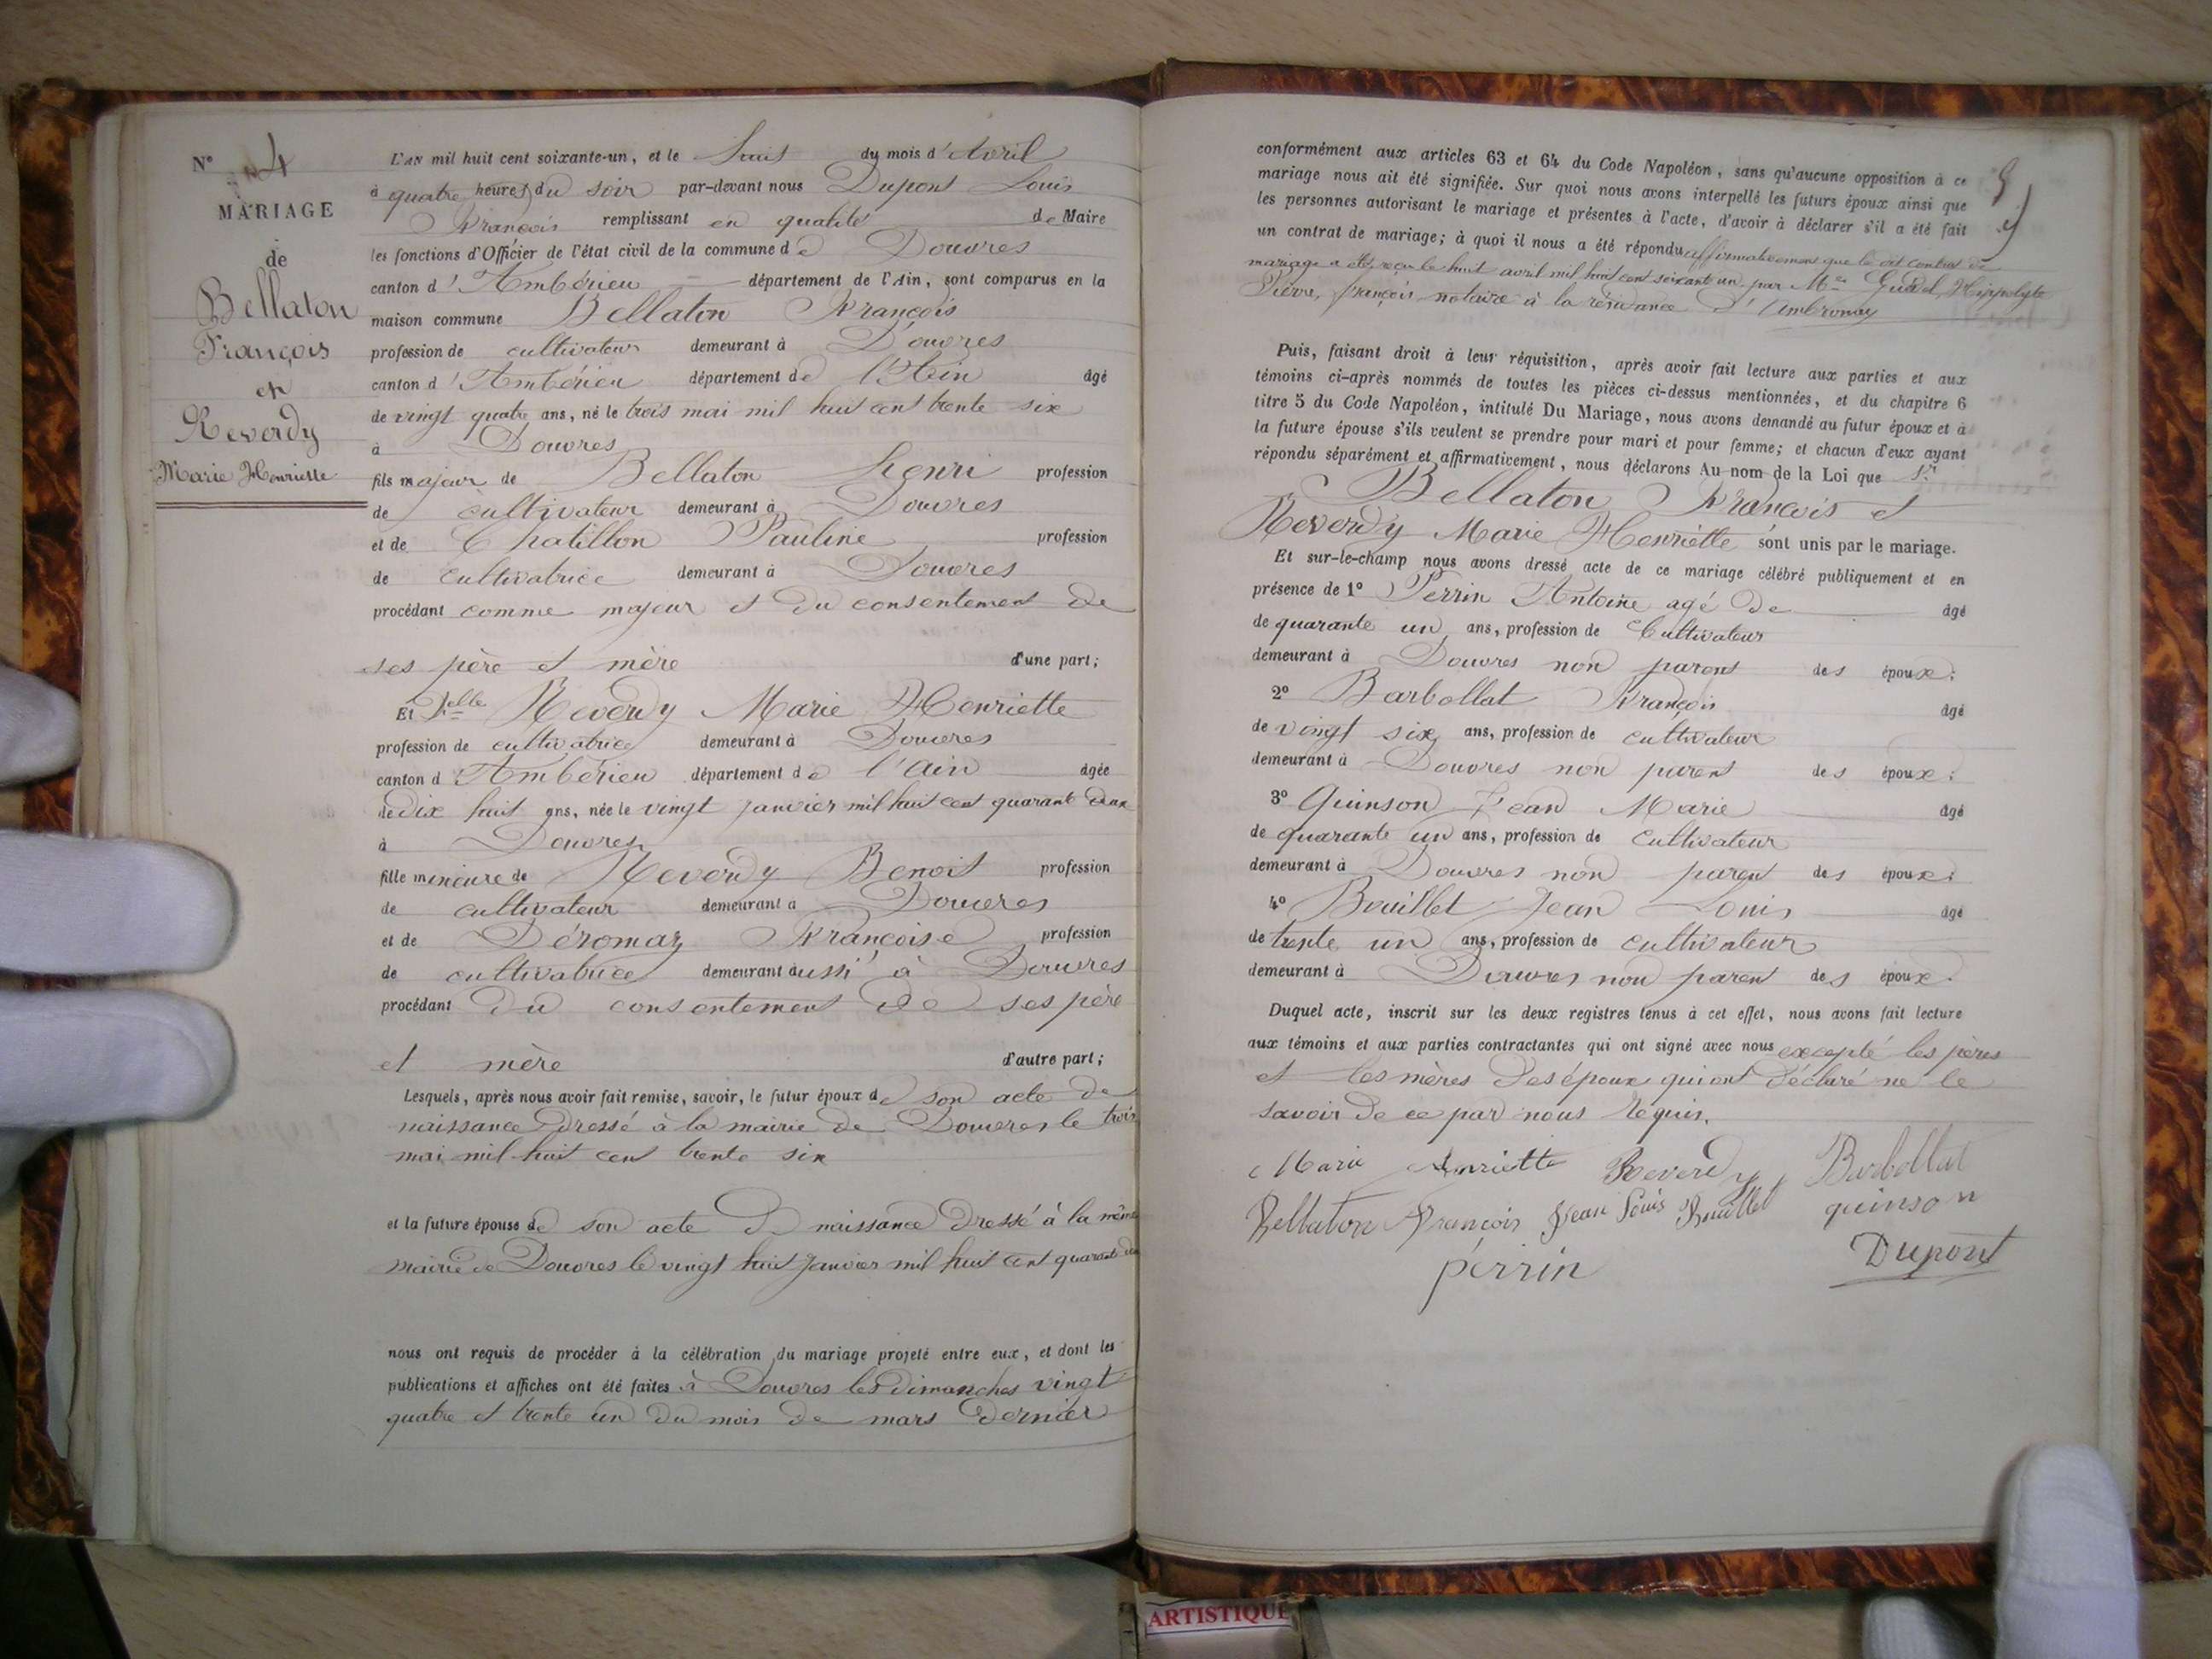 N° 4
MARIAGE
de
Bellaton
François
et
Reverdy
Marie Henriette
L'AN mil huit cent soixante-un, et le huit du mois d'Avril
à quatre heures du soir par-devant nous Dupont Louis
François remplissant en qualité de Maire
les fonctions d'Officier de l'état civil de la commune de Douvres
canton d'Ambérieu département de l'Ain, sont comparus en la
maison commune Bellaton François
profession de cultivateur demeurant à Douvres
canton d'Ambérieu département de l'Ain âgé
de vingt quatre ans, né le trois mai mil huit cent trente six
à Douvres
fils majeur de Bellaton henri profession
de cultivateur demeurant à Douvres
et de Chatillon Pauline profession
de cultivatrice demeurant à Douvres
procédant comme majeur et du consentement de
ses père et mère d'une part;
Et Delle Reverdy Marie Henriette
profession de cultivatrice demeurant à Douvres
canton d'Ambérieu département de l'ain âgée
de dix huit ans, née le vingt janvier mil huit cent quarante deux
à Douvres
fille mineure de Reverdy Benoit profession
de cultivateur demeurant à Douvres
et de Déromaz Françoise profession
de cultivatrice demeurant aussi à Douvres
procédant du consentement de ses père
et mère d'autre part;
Lesquels, après nous avoir fait remise, savoir, le futur époux de son acte de
naissance dressé à la mairie de Douvres le trois
mai mil huit cent trente six
et la future épouse de son acte de naissance dressé à la même
mairie de Douvres le vingt huit janvier mil huit cent quarante
nous ont requis de procéder à la célébration du mariage projeté entre eux, et dont les
publications et affiches ont été faites à Douvres les dimanches vingt
quatre et trente un du mois de mars dernier
conformément aux articles 63 et 64 du Code Napoléon, sans qu'aucune opposition à ce
mariage nous ait été signifiée. Sur quoi nous avons interpellé les futurs époux ainsi que
les personnes autorisant le mariage et présentes à l'acte, d'avoir à déclarer s'il a été fait
un contrat de mariage; à quoi il nous a été répondu affirmativement que le dit contrat de
mariage a été reçu le huit avril mil huit cent soixante un par Me Hippolyte
Pierre, françois notaire à la résidence d'Ambronay
Puis, faisant droit à leur réquisition, après avoir fait lecture aux parties et aux
témoins ci-après nommés de toutes les pièces ci-dessus mentionnées, et du chapitre 6
titre 5 du Code Napoléon, intitulé Du Mariage, nous avons demandé au futur époux et à
la future épouse s'ils veulent se prendre pour mari et pour femme; et chacun d'eux ayant
répondu séparément et affirmativement, nous déclarons Au nom de la Loi que Sr
Bellaton François et
Reverdy Marie Henriette sont unis par le mariage.
Et sur-le-champ nous avons dressé acte de ce mariage célébré publiquement et en
présence de 1° Perrin Antoine agé de âgé
de quarante un ans, profession de Cultivateur
demeurant à Douvres non parent des époux;
2° Barbollat François âgé
de vingt six ans, profession de cultivateur
demeurant à Douvres non parent des époux;
3° Quinson Jean Marie âgé
de quarante un ans, profession de cultivateur
demeurant à Douvres non parent des époux;
4° Bouillet Jean Louis âgé
de trente un ans, profession de cultivateur
demeurant à Douvres non parent des époux.
Duquel acte, inscrit sur les deux registres tenus à cet effet, nous avons fait lecture
aux témoins et aux parties contractantes qui ont signé avec nous excepté les pères
et les mères des époux qui ont déclaré ne le
savoir de ce par nous requis.
Marie henriette Reverdy Barbollat
Bellaton François Jean Louis Bouillet quinson
perrin Dupont
ARTISTIQUE